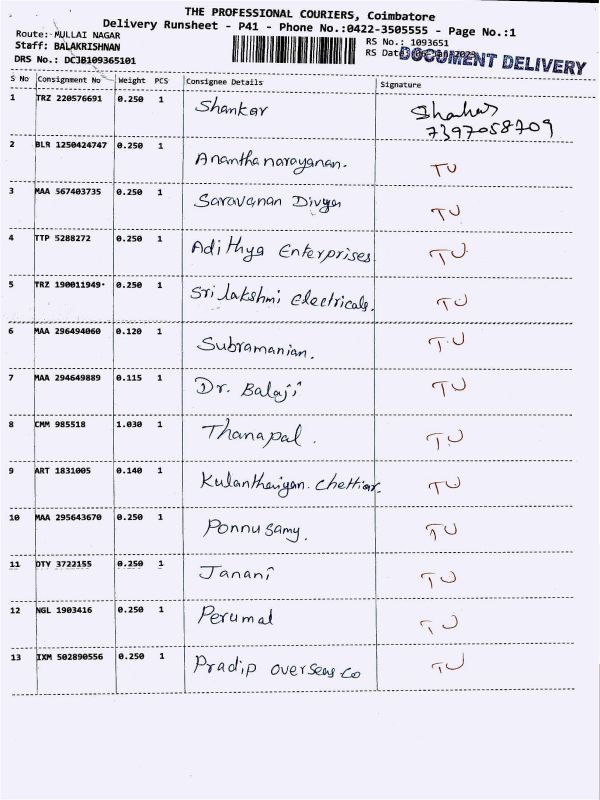 THE PROFESSIONAL COURIERS, Coimbatore
Delivery Runsheet - P41 - Phone No.:0422-3505555 - Page No.:1
Route: MULLAI NAGAR
Staff: BALAKRISHNAN
DRS No.: DCJB109365101
RS No.: 1093651
RS Date:
DOCUMENT DELIVERY
S No Consignment No Weight PCS Consignee Details Signature
1 TRZ 220576691 0.250 1 Shankar Shankar
7397058709
2 BLR 1250424747 0.250 1 Ananthanarayanan. TU
3 MAA 567403735 0.250 1 Saravanan Divya TU
4 TTP 5288272 0.250 1 Adithya Enterprises TU
5 TRZ 190011949 0.250 1 Sri lakshmi electricals. TU
6 MAA 296494060 0.120 1 Subramanian. T.U
7 MAA 294649889 0.115 1 Dr. Balaji TU
8 CMM 985518 1.030 1 Thanapal. T.U
9 ART 1831005 0.140 1 Chettiar. TU
10 MAA 295643670 0.250 1 Ponnusamy. TU
11 DTY 3722155 0.250 1 Janani TU
12 NGL 1903416 0.250 1 Perumal TU
13 IXM 502890556 0.250 1 Pradip overseas co TU